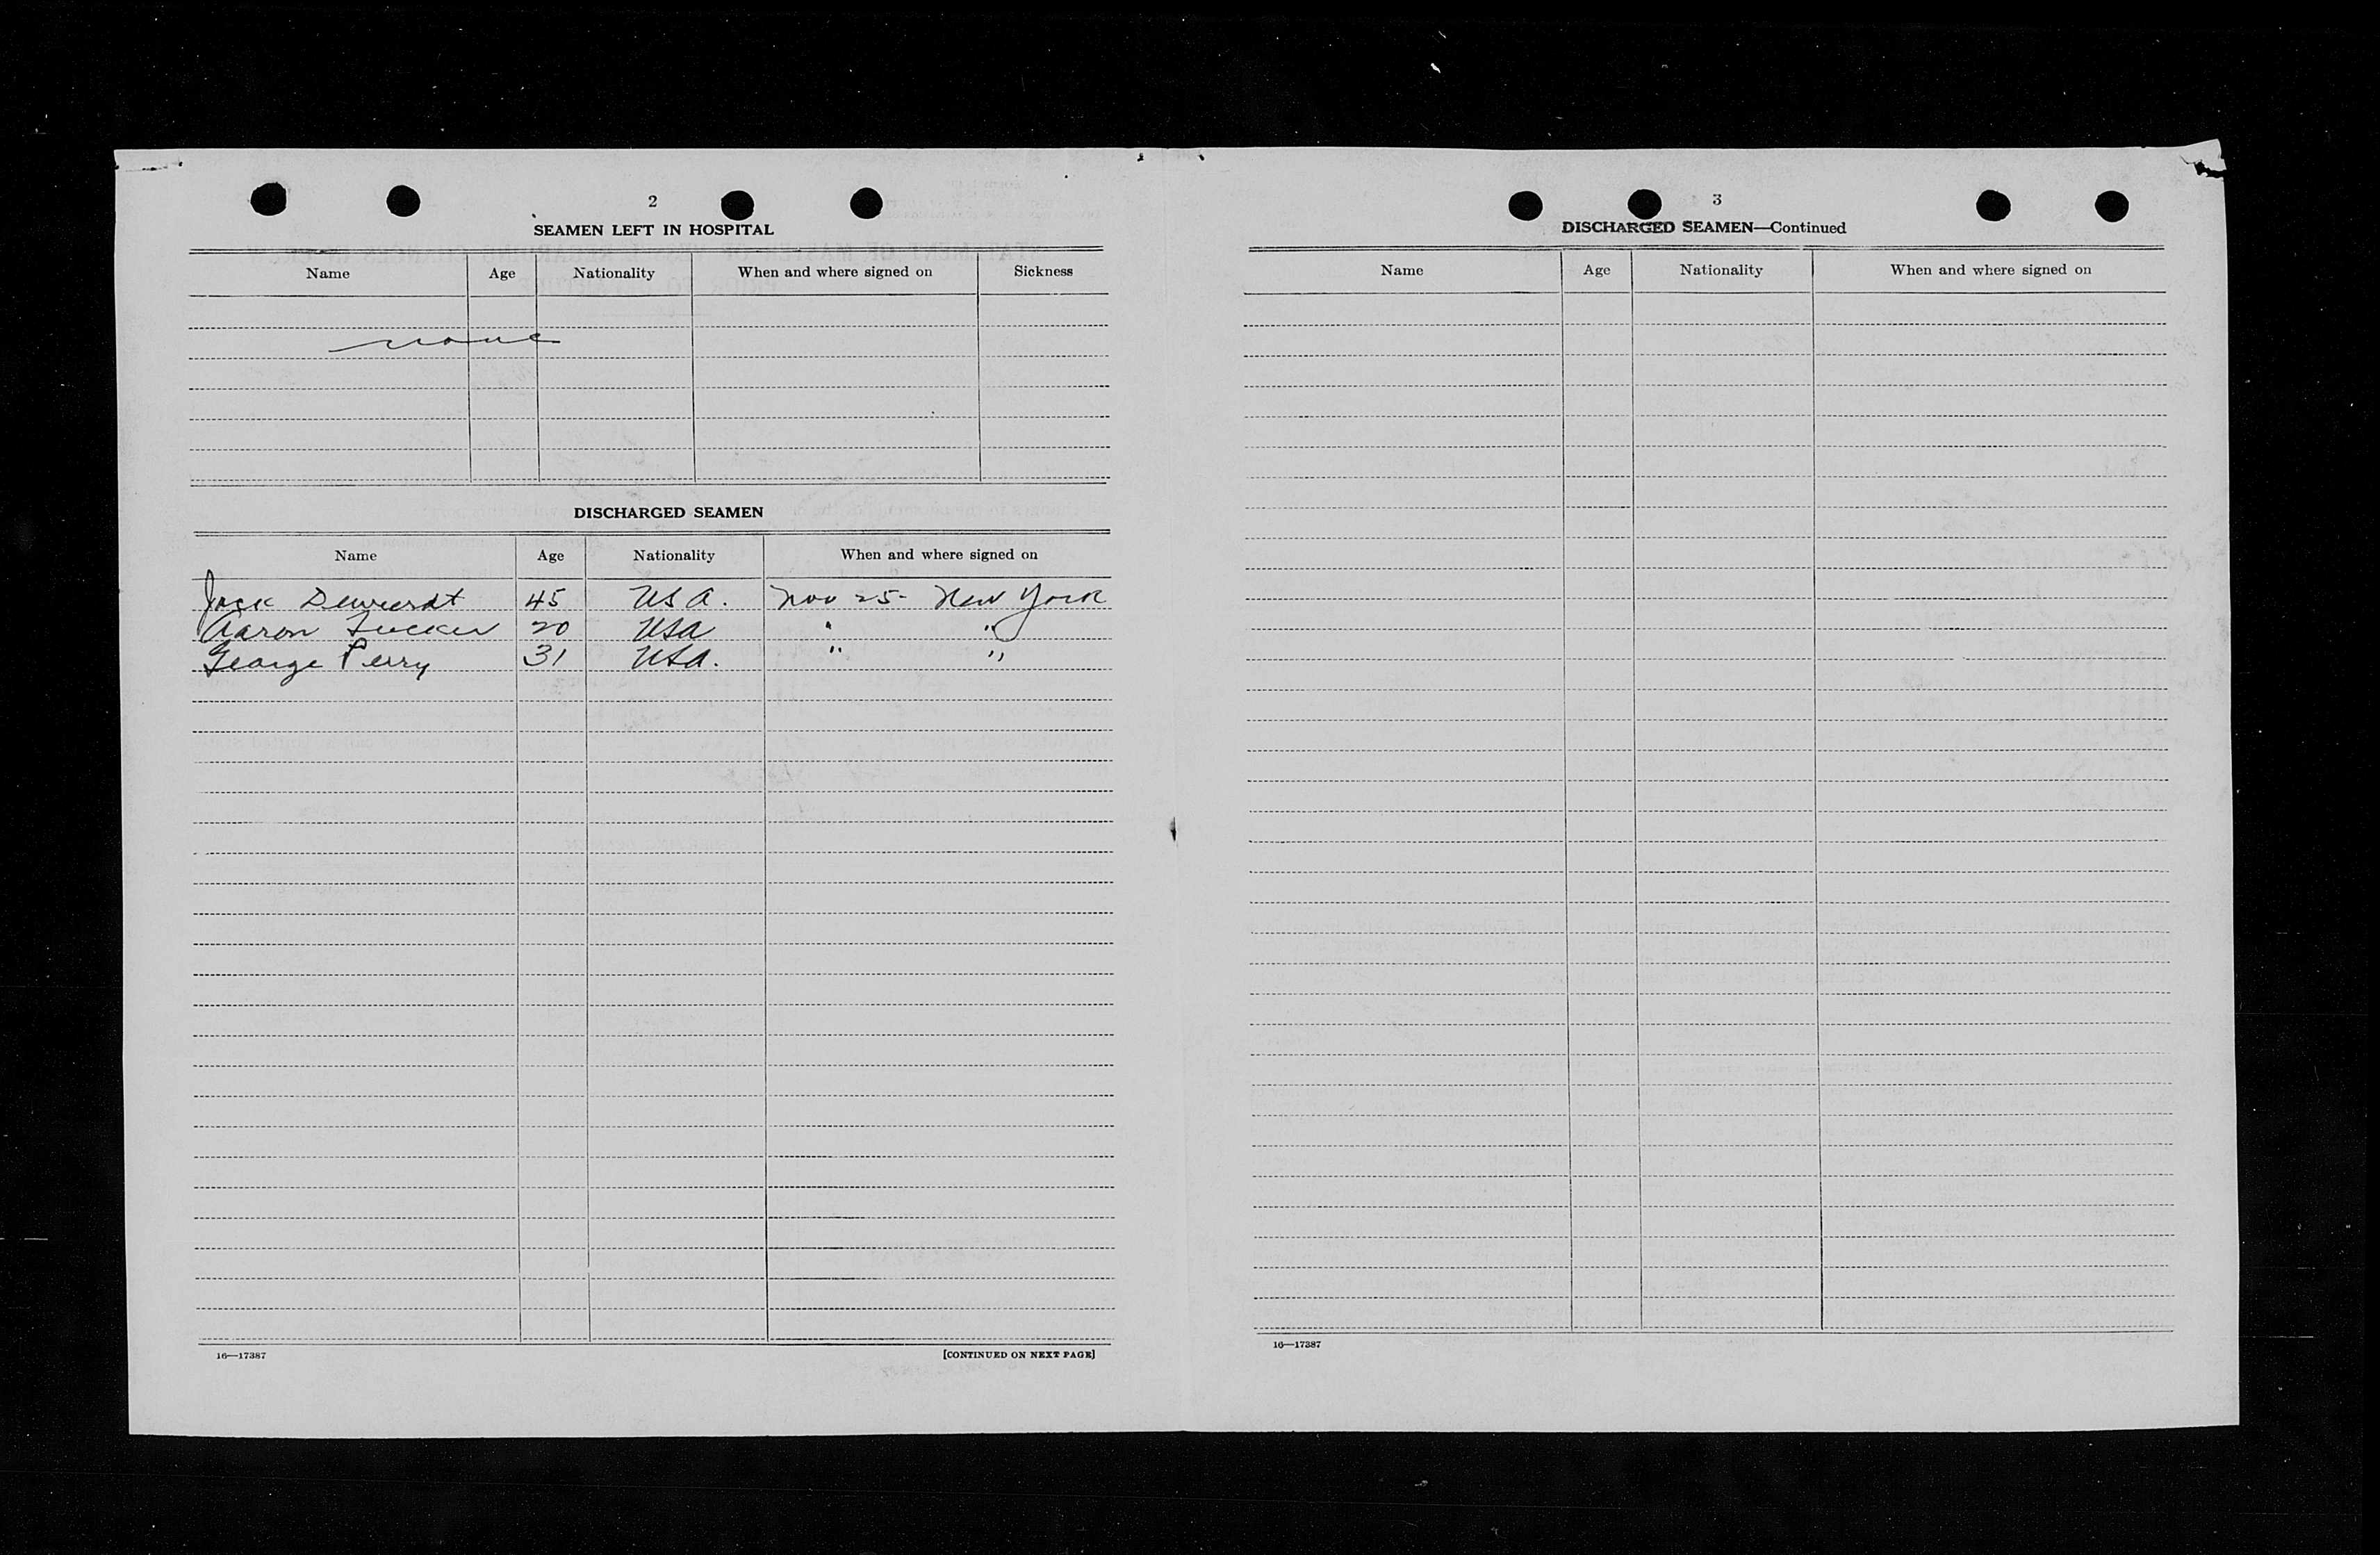 2
SEAMEN LEFT IN HOSPITAL
Name Age Nationality When and where signed on Sickness
none
DISCHARGED SEAMEN
Name Age Nationality When and where signed on
Jack 45 USA. Nov 25- New York
Aaron Tucker 20 USA " "
George Perry 31 USA. " "
16—17387 [CONTINUED ON NEXT PAGE]
3
DISCHARGED SEAMEN—Continued
Name Age Nationality When and where signed on
16—17387